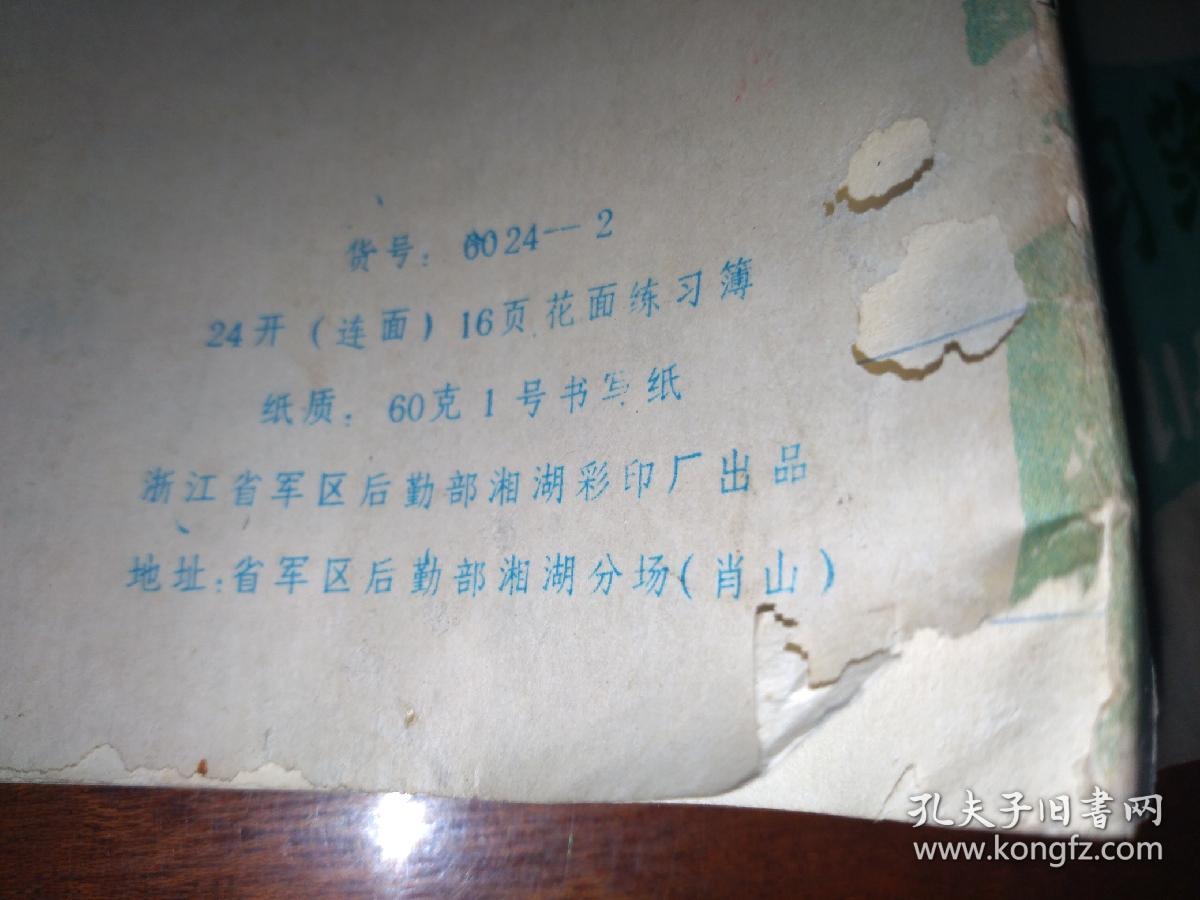 货号：6024—2
24开（连面）16页花面练习簿
纸质：60克1号书写纸
浙江省军区后勤部湘湖彩印厂出品
地址：省军区后勤部湘湖分场（肖山）
孔夫子旧書网
www.kongfz.com